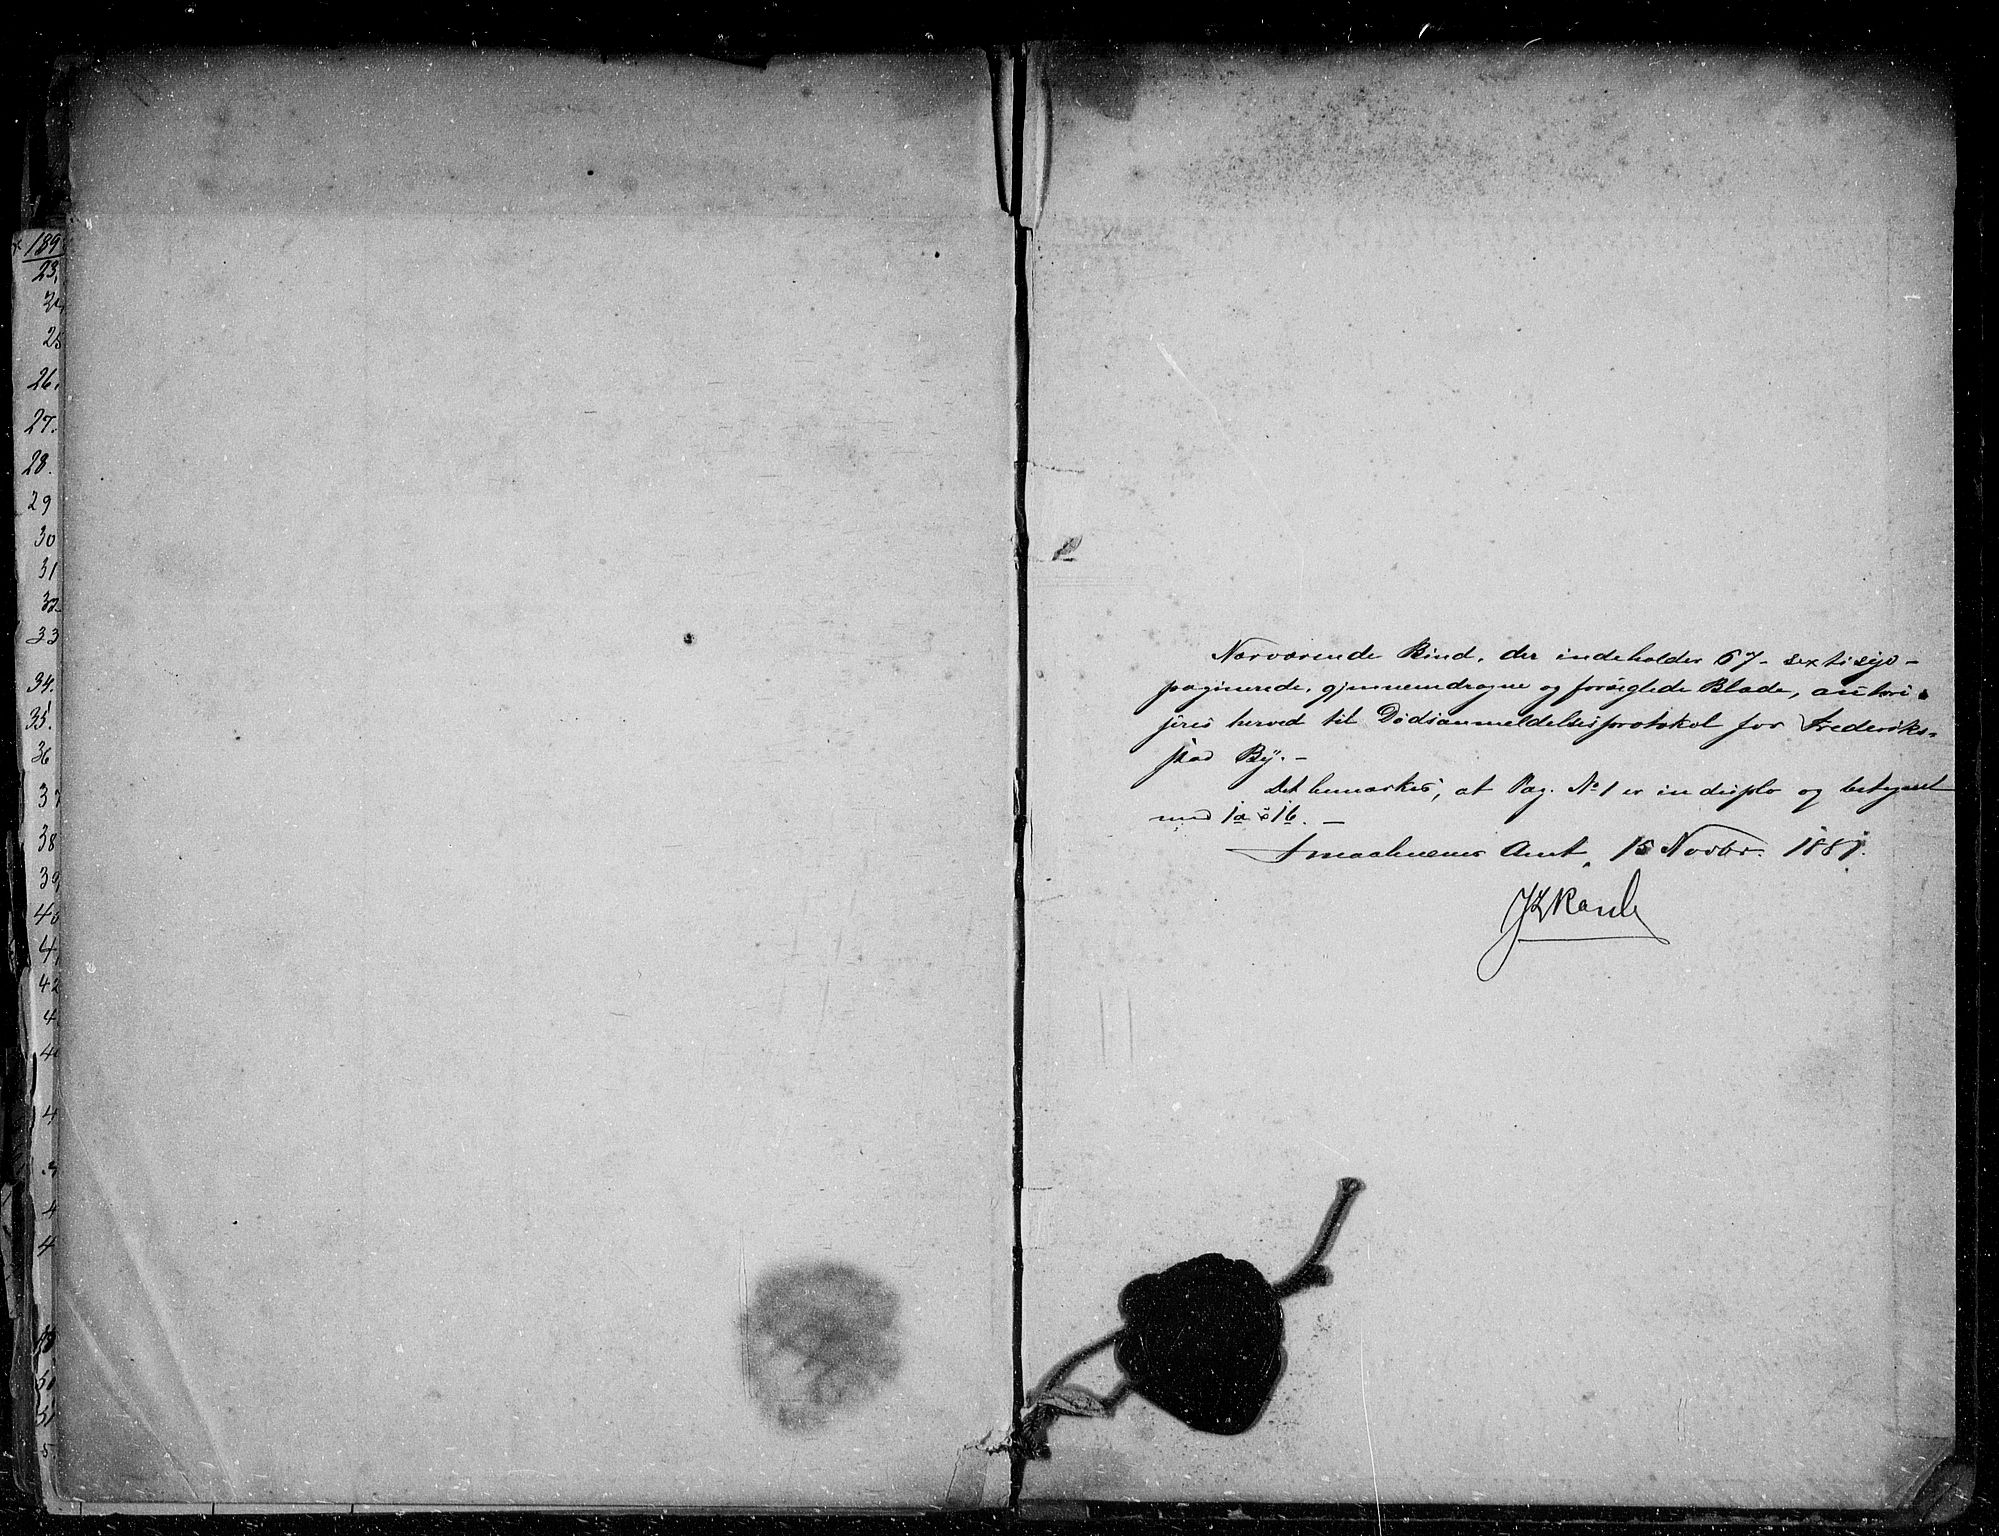 189
23.
24
25
26.
27.
28.
29
30
31
32
33
34.
35.
36
37
38
39
40
41
42
4
4
4
3
4
4
50
51
5
Nærværende Bind, der indeholder 67 - sextisyv -
paginerede, gjennemdragne og forseglede Blade, autori-
seres herved til Dødsanmeldelsesprotokol for Frederiks-
stad By. -
Det bemærkes, at Pag. No 1 er in duplo og betegnet
med 1a & 1b. -
Smaalenenes Amt, 15 Novbr. 1881.